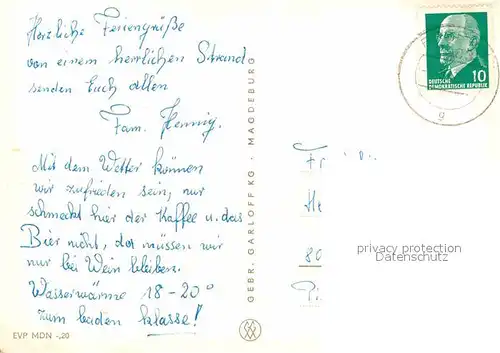 Herzliche Feriengrüße
von einem herrlichen Strand
senden Euch allen
Fam. Hennig.
Mit dem Wetter können
wir zufrieden sein, nur
schmeckt hier der Kaffee u. das
Bier nicht, da müssen wir
nur bei Wein bleiben.
Wasserwärme 18-20°
zum baden klasse!
EVP MDN -,20
GEBR. GARLOFF KG · MAGDEBURG
10
DEUTSCHE
DEMOKRATISCHE REPUBLIK
g
Fr
80
privacy protection
Datenschutz